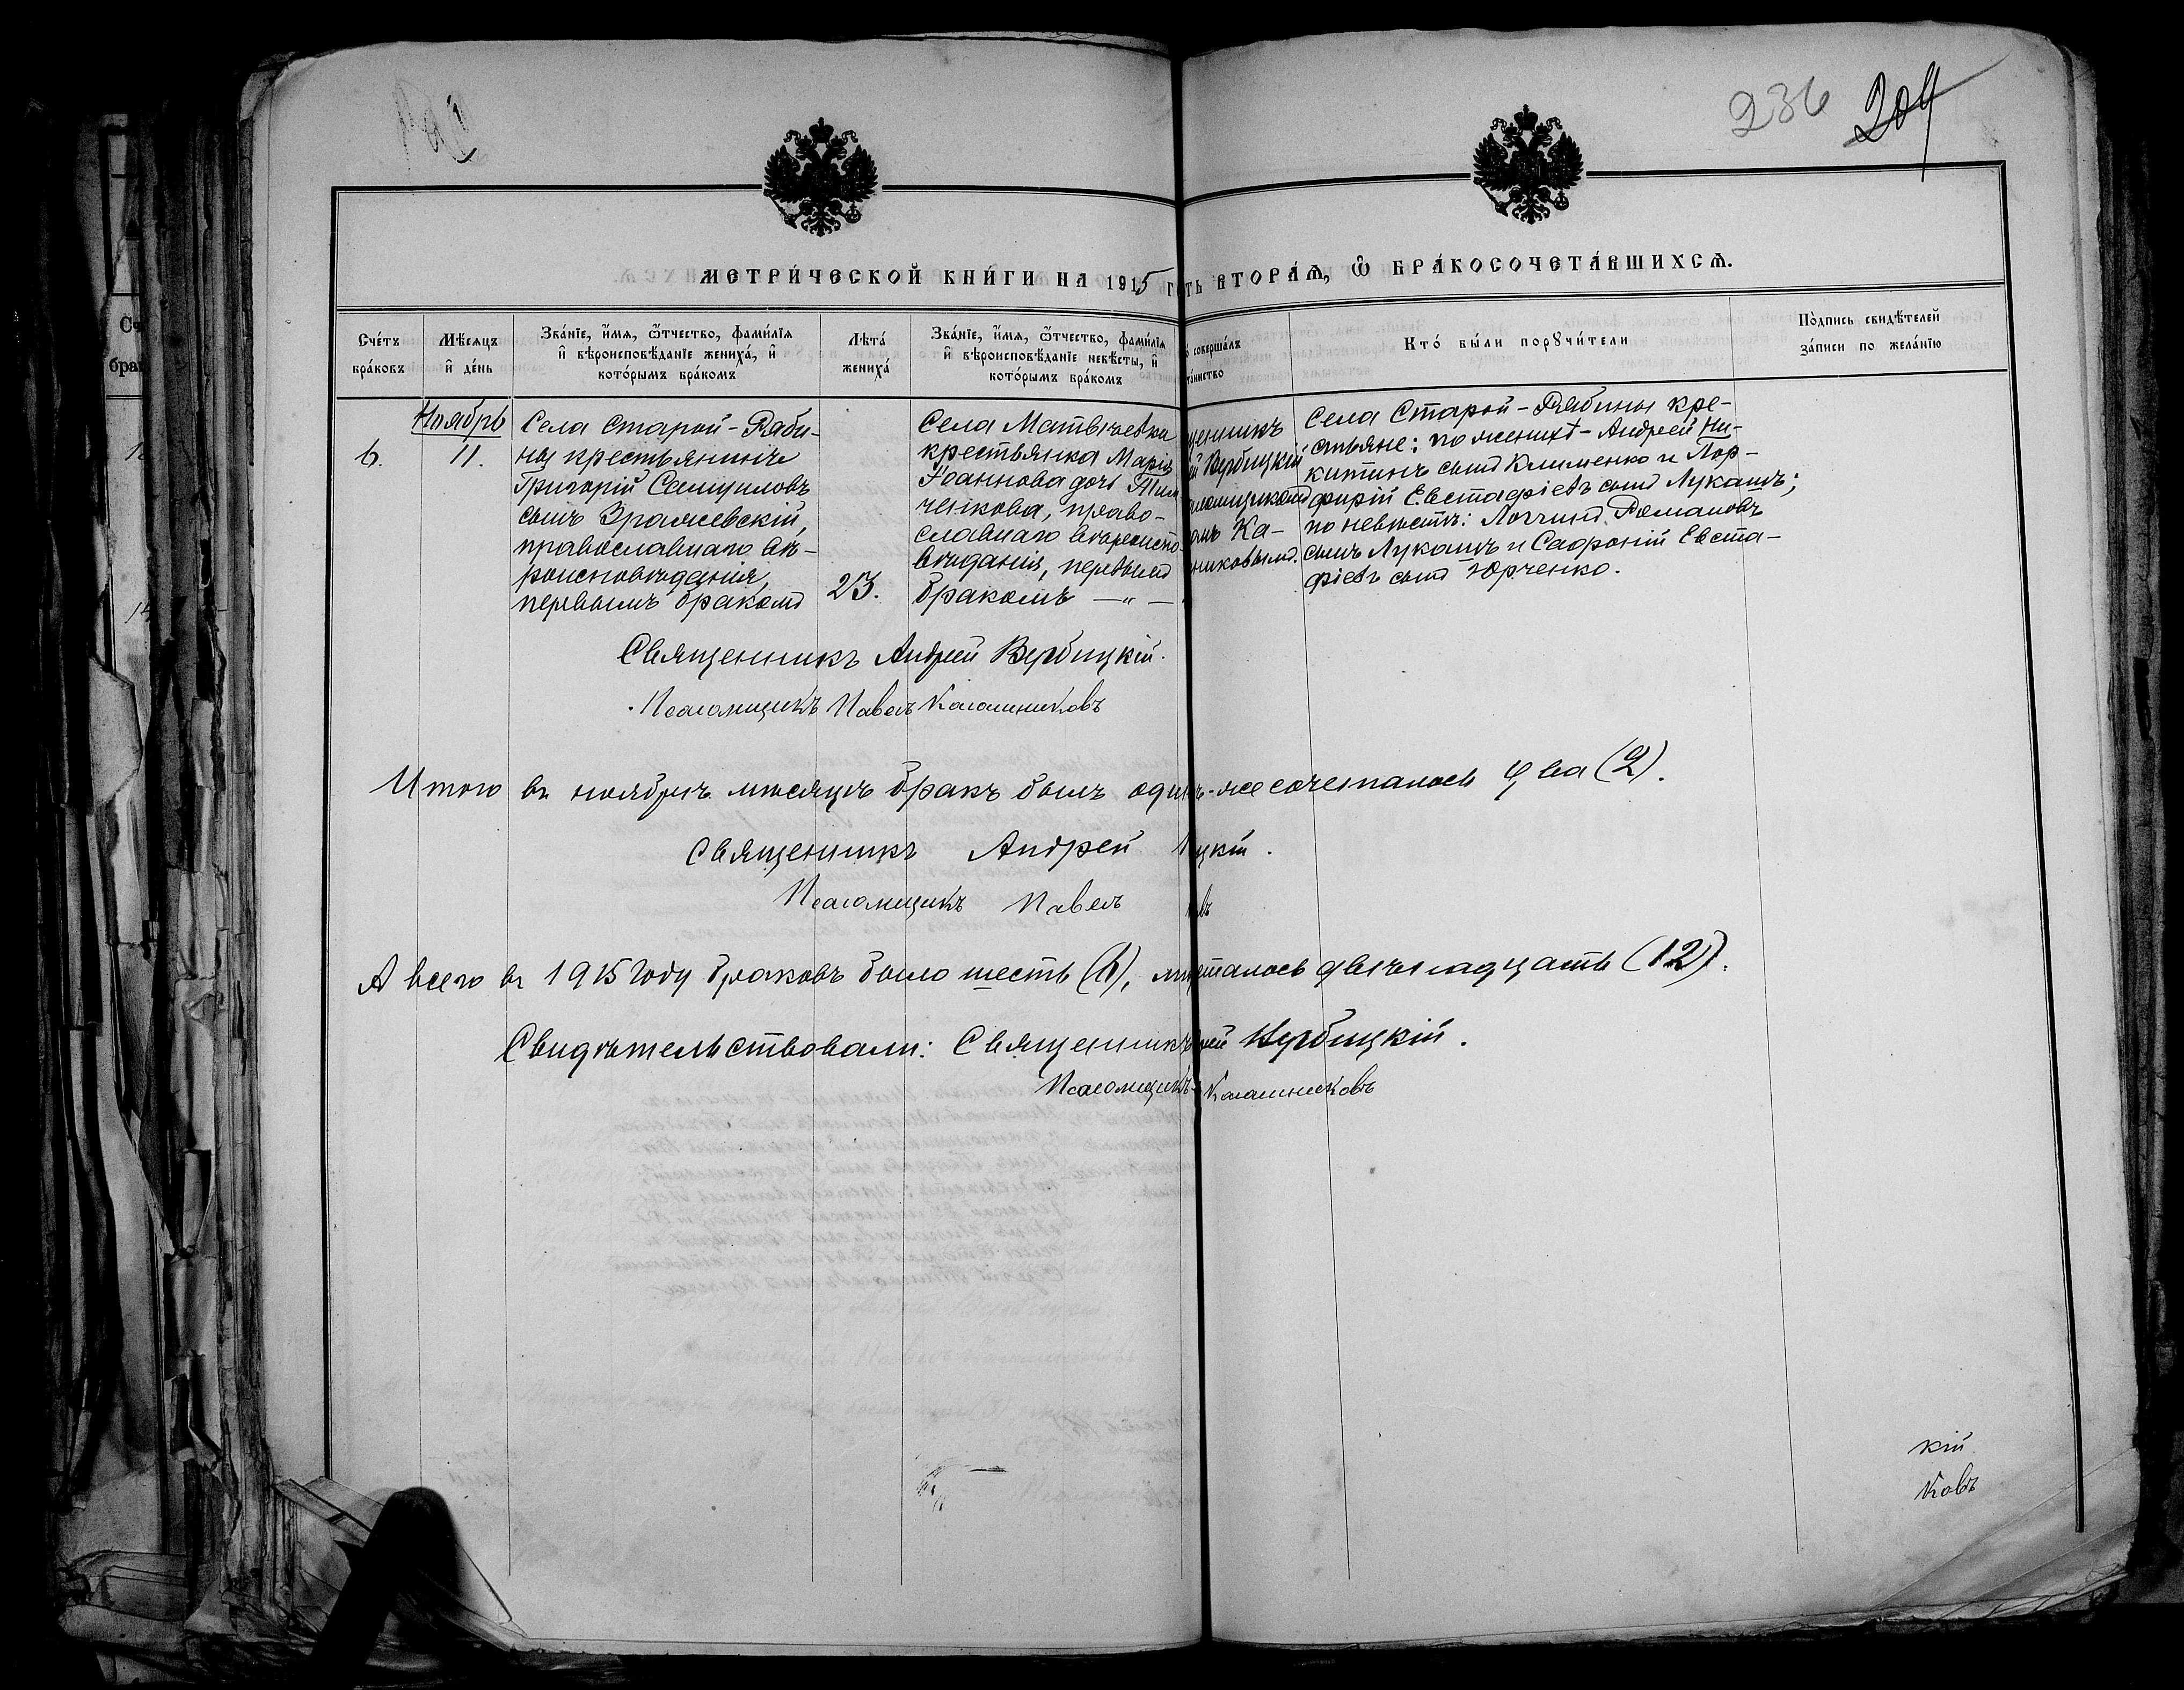 236 209
МЕТРИ́ЧЕСКОЙ КНИ́ГИ НА 1915 ГО ТЬ ВТОРА́Ѧ, Ѡ҆ БРА́КОСОЧЕТА́ВШИХСѦ.
Сче́тъ бра́ковъ
Мѣ́сѧцъ и҆ де́нь
Зва́нїе, и҆́мѧ, ѻ҆́тчество, фами́лїѧ и҆ вѣроисповѣ́данїе жениха́, и҆ кото́рымъ бра́комъ
Лѣта̀ жениха́
Зва́нїе, и҆́мѧ, ѻ҆́тчество, фами́лїѧ и҆ вѣроисповѣ́данїе невѣ́сты, и҆ кото́рымъ бра́комъ
соверша́лъ та́инство
Кто́ бы́ли порꙋчи́тели
По́дпись свидѣ́телей за́писи по жела́нїю
Ноябрь
6.
11.
Села Старой-Ряби-
ны крестьянинъ
Григорій Самуиловъ
сынъ Зражевскій,
православнаго вѣ-
роисповѣданія,
первымъ бракомъ
23.
Села Матвѣевки
крестьянка Марія
Іоаннова дочь Тим-
ченкова, право-
славнаго вѣроиспо-
вѣданія, первымъ
бракомъ —"—
щенникъ
й Вербицкій
ломщикомъ
омъ Ка-
никовымъ.
Села Старой-Рябины кре-
стьяне: по женихѣ - Андрей Ни-
китинъ сынъ Клименко и Пор-
фирій Евстафіевъ сынъ Лукашъ;
по невѣстѣ: Логгинъ Романовъ
сынъ Лукашъ и Софроній Евста-
фіевъ сынъ Юрченко.
Священникъ Андрей Вербицкій.
Псаломщикъ Павелъ Калашниковъ
Итого въ ноябрѣ мѣсяцѣ бракъ былъ один ъ-же сочеталось два (2).
Священникъ Андрей цкій.
Псаломщикъ Павелъ въ
А всего въ 1915 году браковъ было шесть (6), ли еталось двѣнадцать (12).
Свидѣтельствовали: Священникъ рей Вербицкій.
Псаломщикъ Калашниковъ
кій
ковъ